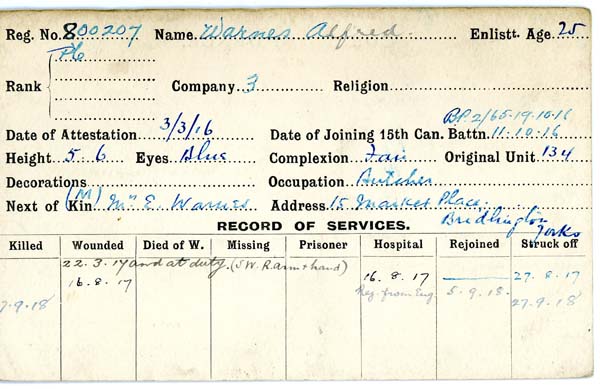 Reg. No. 800207 Name Warnes Alfred Enlistt. Age 25
Pte
Rank Company 3 Religion
B.P. 2/65-19-10-16
Date of Attestation 3/3/16 Date of Joining 15th Can. Battn. 11.10.16
Height 5.6 Eyes Blue Complexion Fair Original Unit 134
Decorations Occupation Butcher
Next of Kin (M) Mrs E. Warnes Address 15 Market Place.
Bridlington
Yorks
RECORD OF SERVICES.
Killed Wounded Died of W. Missing Prisoner Hospital Rejoined Struck off
22.3.17 and at duty. (SW. R. arm & hand)
16.8.17 16.8.17 27.8.17
Rej. from Eng. 5.9.18.
27.9.18 27.9.18